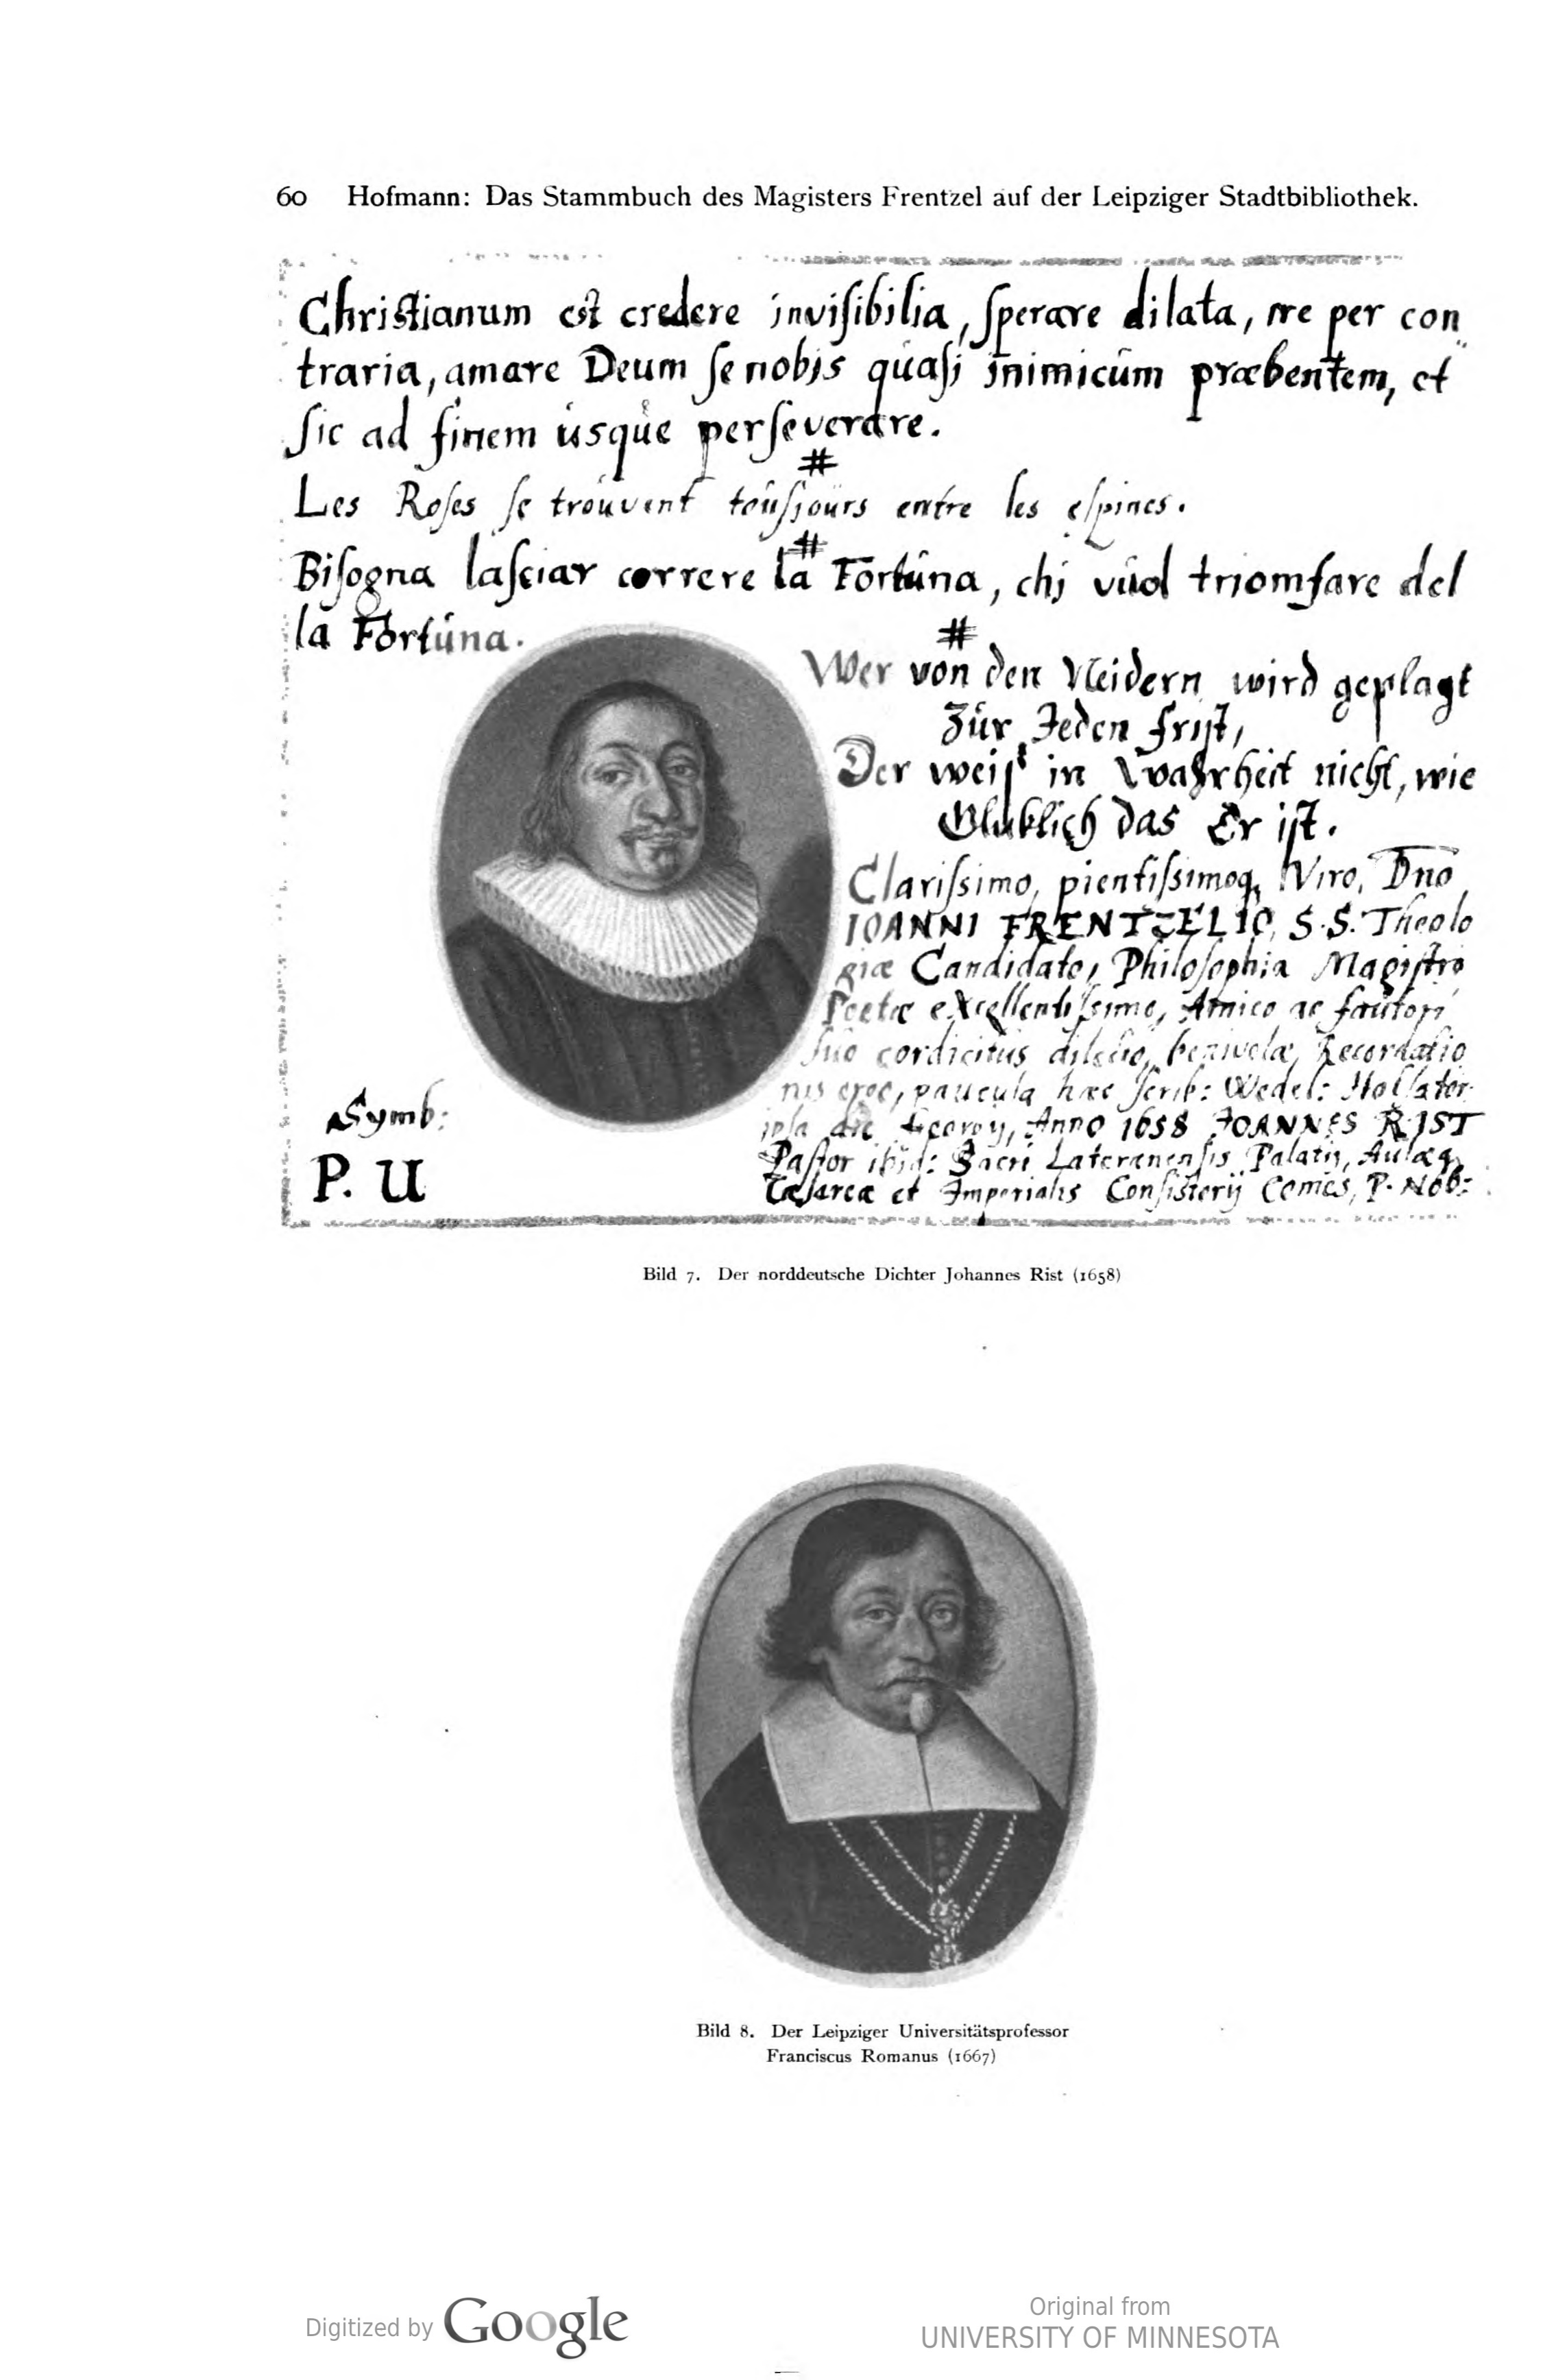 60 Hofmann: Das Stammbuch des Magisters Frentzel auf der Leipziger Stadtbibliothek.
Chriſtianum est credere inviſibilia, ſperare dilata, ire per con„
traria, amare Deum ſe nobis quaſi inimicum præbentem, et
ſic ad finem usque perſeverare.
#
Les Roſes ſe trouvent touſjours entre les eſpines.
#
Biſogna laſciar correre la Fortuna, chi vuol triomfare del
la Fortuna.
#
Wer von den Neidern wird geplagt
Zur Jeden friſt,
Der weiſ in Wahrheit nicht, wie
Gluklich das Er iſt.
Clariſsimo, pientiſsimoq, Viro, Dno
IOANNI FRENTZELIO, S.S. Theolo
giæ Candidato, Philoſophia Magiſtro
Poetæ excellentiſsimo, Amico ac fautori
ſuo cordicitus dilecto, benivolæ Recordatio
nis ergo, paucula hæc ſcrib: Wedel: Holſator:
ipſa die Georgij, Anno 1658 JOANNES RIST
Paſtor ibid: Sacri Lateranenſis Palatij, Aulæq,
Cæſareæ et Imperialis Conſistorij Comes, P. Nob:
Symb:
P. U
Bild 7. Der norddeutsche Dichter Johannes Rist (1658)
Bild 8. Der Leipziger Universitätsprofessor
Franciscus Romanus (1667)
Digitized by Google
Original from
UNIVERSITY OF MINNESOTA